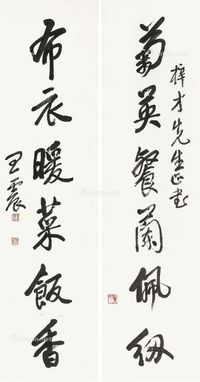 梓才先生正書
菊英餐蘭佩紉
布衣暖菜飯香
王震